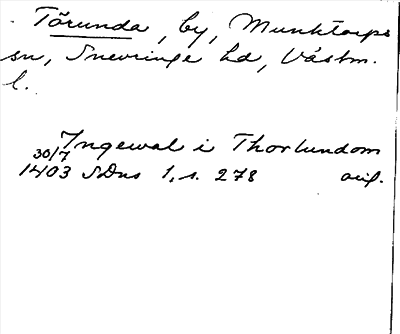 Tõrunda, by, Munktorps
sn, Snevringe hd, Västm.
l.
Ingewal i Thorlundom
30/7
1403 SDns 1, s. 278 orig.